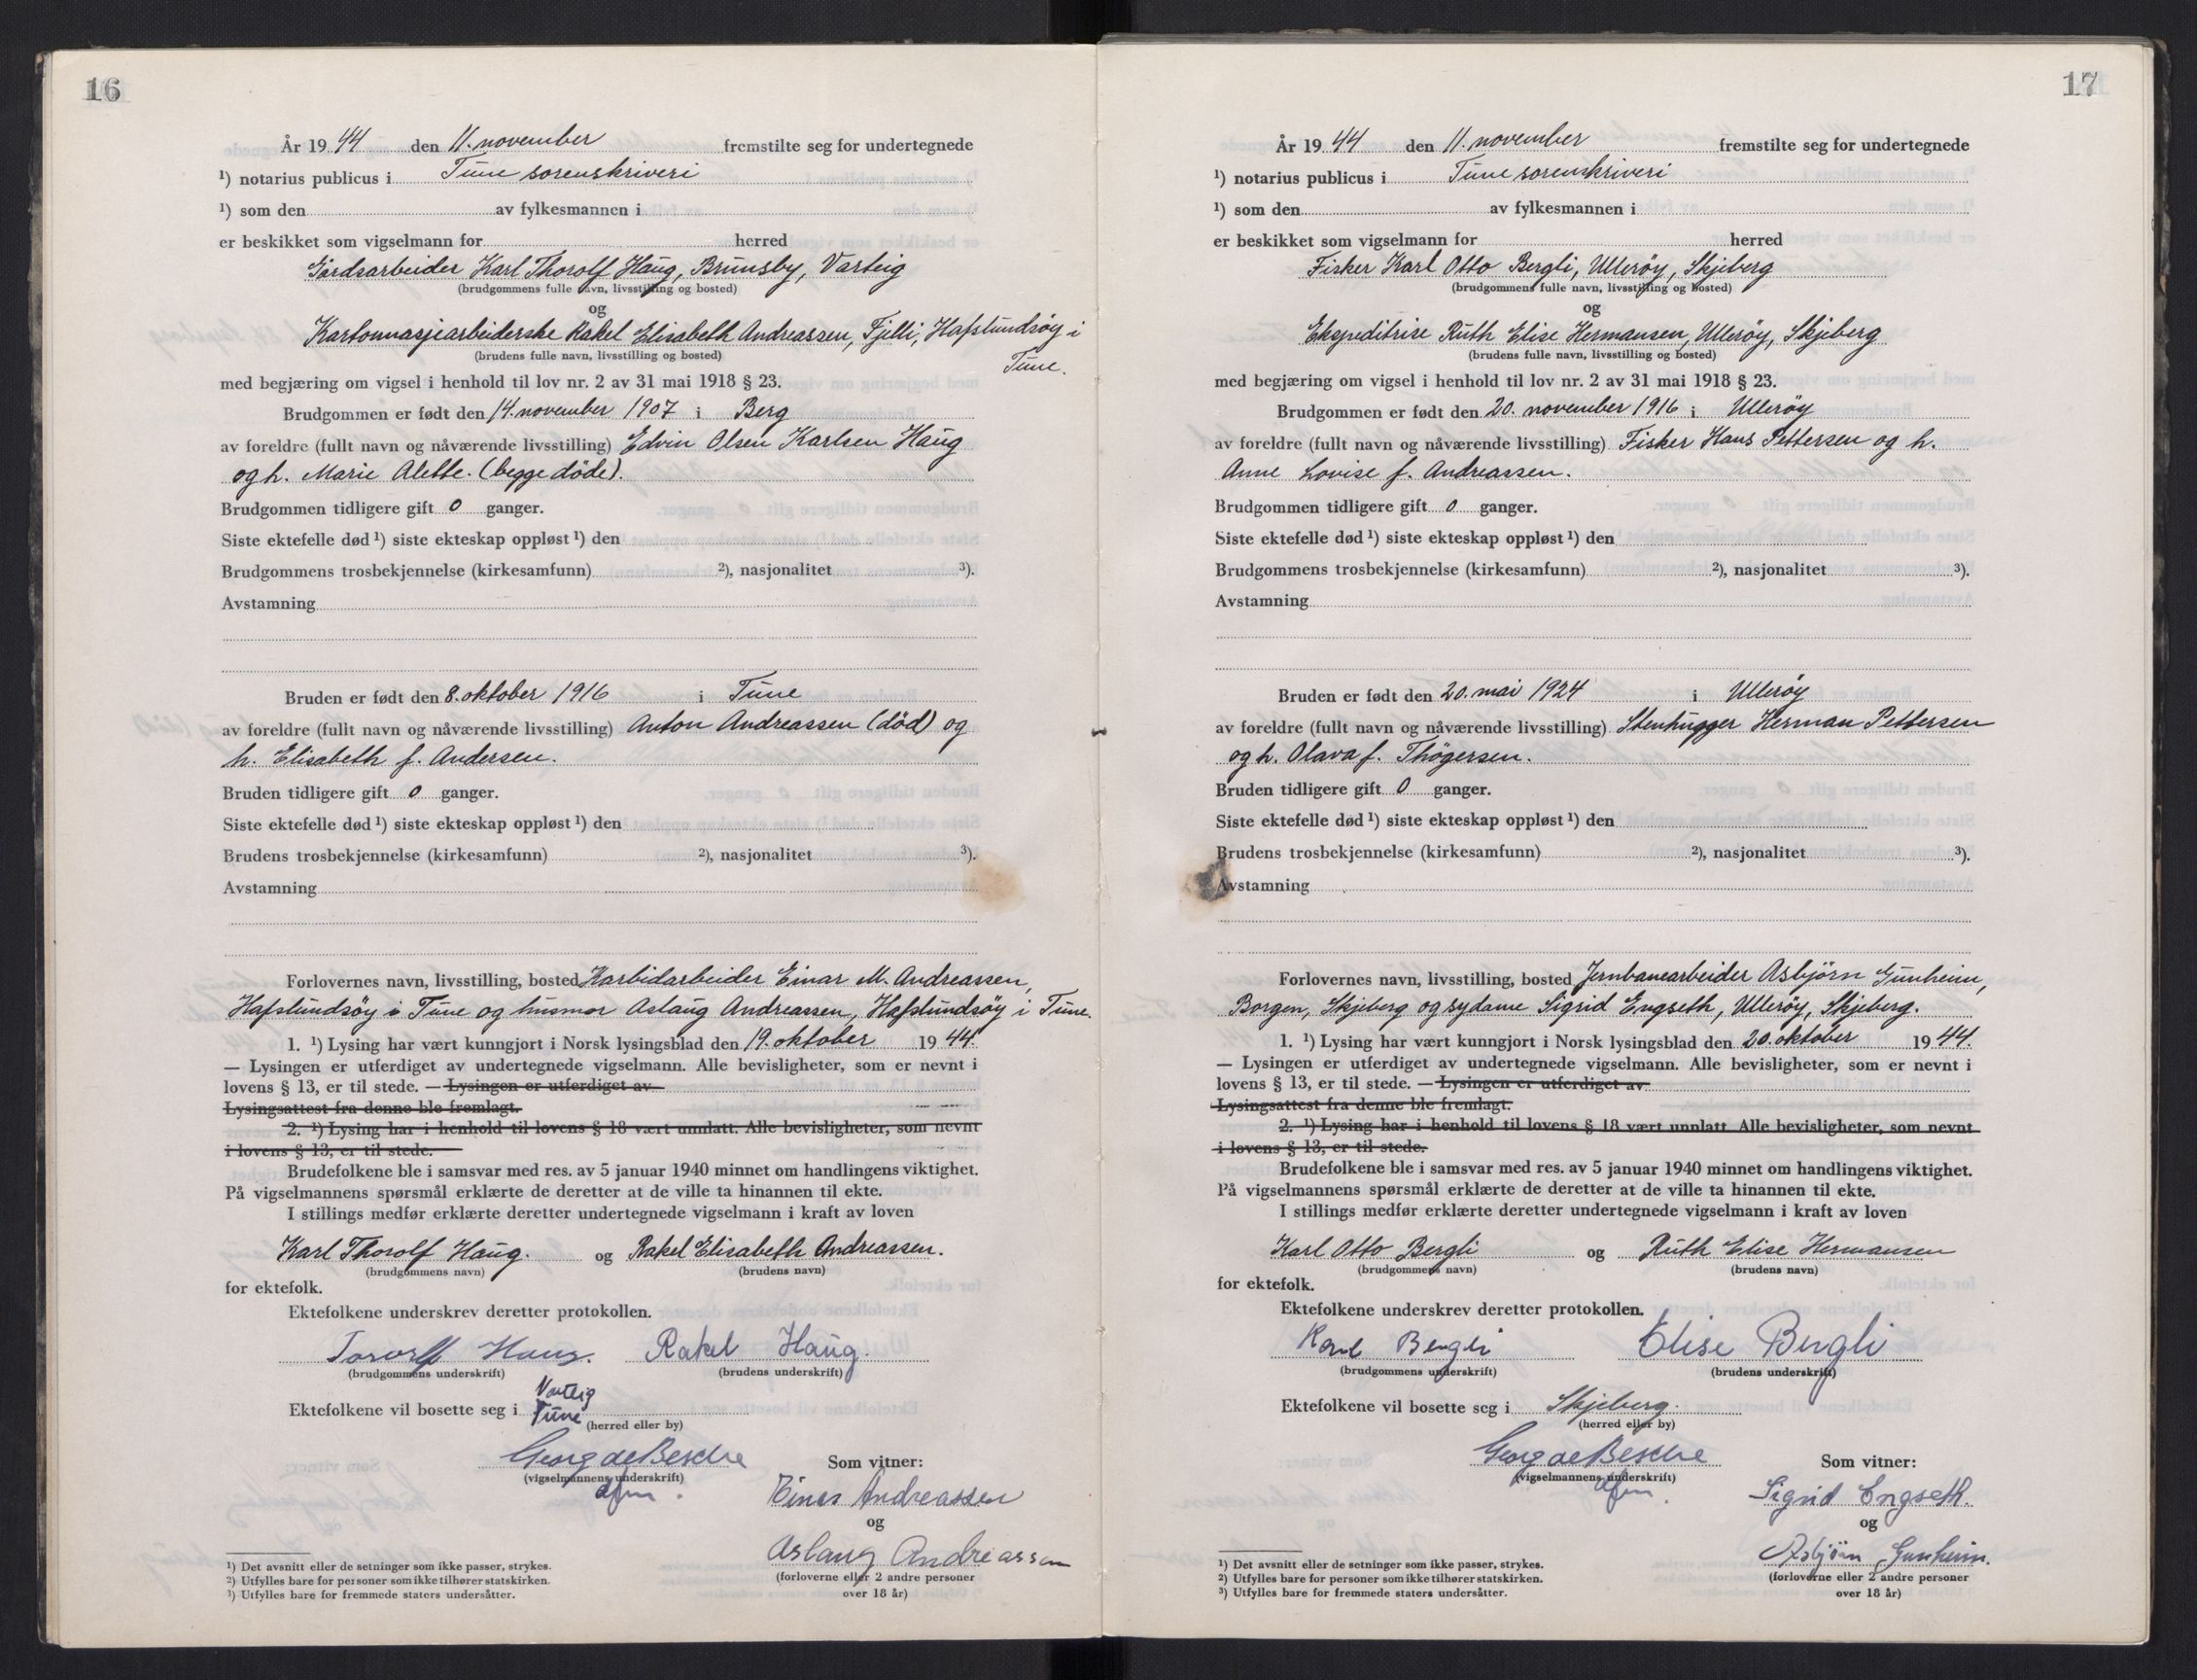 16
År 19 44 den 11. november fremstilte seg for undertegnede
¹) notarius publicus i Tune sorenskriveri
¹) som den av fylkesmannen i
er beskikket som vigselmann for herred
Gårdsarbeider Karl Thorolf Haug, Brunsby, Varteig
(brudgommens fulle navn, livsstilling og bosted)
og
Kartonnasjearbeiderske Rakel Elisabeth Andreassen, Fjelli, Hafslundsøy i
Tune.
(brudens fulle navn, livsstilling og bosted)
med begjæring om vigsel i henhold til lov nr. 2 av 31 mai 1918 § 23.
Brudgommen er født den 14. november 1907 i Berg
av foreldre (fullt navn og nåværende livsstilling) Edvin Olsen Karlsen Haug
og h. Marie Alette. (begge döde).
Brudgommen tidligere gift 0 ganger.
Siste ektefelle død ¹) siste ekteskap oppløst ¹) den
Brudgommens trosbekjennelse (kirkesamfunn) ²), nasjonalitet ³).
Avstamning
Bruden er født den 8. oktober 1916 i Tune
av foreldre (fullt navn og nåværende livsstilling) Anton Andreassen (död) og
h. Elisabeth f. Andersen.
Bruden tidligere gift 0 ganger.
Siste ektefelle død ¹) siste ekteskap oppløst ¹) den
Brudens trosbekjennelse (kirkesamfunn) ²), nasjonalitet ³).
Avstamning
Forlovernes navn, livsstilling, bosted Karbidarbeider Einar M. Andreassen,
Hafslundsöy i Tune og husmor Aslaug Andreassen, Hafslundsöy i Tune.
1. ¹) Lysing har vært kunngjort i Norsk lysingsblad den 19. oktober 19 44.
— Lysingen er utferdiget av undertegnede vigselmann. Alle bevisligheter, som er nevnt i
lovens § 13, er til stede. — Lysingen er utferdiget av
Lysingsattest fra denne ble fremlagt.
2. ¹) Lysing har i henhold til lovens § 18 vært unnlatt. Alle bevisligheter, som nevnt
i lovens § 13, er til stede.
Brudefolkene ble i samsvar med res. av 5 januar 1940 minnet om handlingens viktighet.
På vigselmannens spørsmål erklærte de deretter at de ville ta hinannen til ekte.
I stillings medfør erklærte deretter undertegnede vigselmann i kraft av loven
Karl Thorolf Haug. og Rakel Elisabeth Andreassen.
(brudgommens navn) (brudens navn)
for ektefolk.
Ektefolkene underskrev deretter protokollen.
Torolf Haug. Rakel Haug.
(brudgommens underskrift) (brudens underskrift)
Varteig
Ektefolkene vil bosette seg i Tune
(herred eller by)
Georg de Besche
(vigselmannens underskrift)
Som vitner:
Einar Andreassen
og
Aslaug Andreassen
(forloverne eller 2 andre personer
over 18 år)
¹) Det avsnitt eller de setninger som ikke passer, strykes.
²) Utfylles bare for personer som ikke tilhører statskirken.
³) Utfylles bare for fremmede staters undersåtter.
17
År 19 44 den 11. november fremstilte seg for undertegnede
¹) notarius publicus i Tune sorenskriveri
¹) som den av fylkesmannen i
er beskikket som vigselmann for herred
Fisker Karl Otto Bergli, Ulleröy, Skjeberg
(brudgommens fulle navn, livsstilling og bosted)
og
Ekspeditrise Ruth Elise Hermansen, Ulleröy, Skjeberg
(brudens fulle navn, livsstilling og bosted)
med begjæring om vigsel i henhold til lov nr. 2 av 31 mai 1918 § 23.
Brudgommen er født den 20. november 1916 i Ulleröy
av foreldre (fullt navn og nåværende livsstilling) Fisker Hans Pettersen og h.
Anne Lovise f. Andreassen.
Brudgommen tidligere gift 0 ganger.
Siste ektefelle død ¹) siste ekteskap oppløst ¹) den
Brudgommens trosbekjennelse (kirkesamfunn) ²), nasjonalitet ³).
Avstamning
Bruden er født den 20. mai 1924 i Ulleröy
av foreldre (fullt navn og nåværende livsstilling) Stenhugger Herman Pettersen
og h. Olava f. Thögersen.
Bruden tidligere gift 0 ganger.
Siste ektefelle død ¹) siste ekteskap oppløst ¹) den
Brudens trosbekjennelse (kirkesamfunn) ²), nasjonalitet ³).
Avstamning
Forlovernes navn, livsstilling, bosted Jernbanearbeider Asbjörn Gunheim,
Borgen, Skjeberg og sydame Sigrid Engseth, Ulleröy, Skjeberg.
1. ¹) Lysing har vært kunngjort i Norsk lysingsblad den 20. oktober 19 44.
— Lysingen er utferdiget av undertegnede vigselmann. Alle bevisligheter, som er nevnt i
lovens § 13, er til stede. — Lysingen er utferdiget av
Lysingsattest fra denne ble fremlagt.
2. ¹) Lysing har i henhold til lovens § 18 vært unnlatt. Alle bevisligheter, som nevnt
i lovens § 13, er til stede.
Brudefolkene ble i samsvar med res. av 5 januar 1940 minnet om handlingens viktighet.
På vigselmannens spørsmål erklærte de deretter at de ville ta hinannen til ekte.
I stillings medfør erklærte deretter undertegnede vigselmann i kraft av loven
Karl Otto Bergli og Ruth Elise Hermansen
(brudgommens navn) (brudens navn)
for ektefolk.
Ektefolkene underskrev deretter protokollen.
Karl Bergli Elise Bergli
(brudgommens underskrift) (brudens underskrift)
Ektefolkene vil bosette seg i Skjeberg.
(herred eller by)
Georg de Besche
(vigselmannens underskrift)
Som vitner:
Sigrid Engseth.
og
Asbjörn Gunheim.
(forloverne eller 2 andre personer
over 18 år)
¹) Det avsnitt eller de setninger som ikke passer, strykes.
²) Utfylles bare for personer som ikke tilhører statskirken.
³) Utfylles bare for fremmede staters undersåtter.